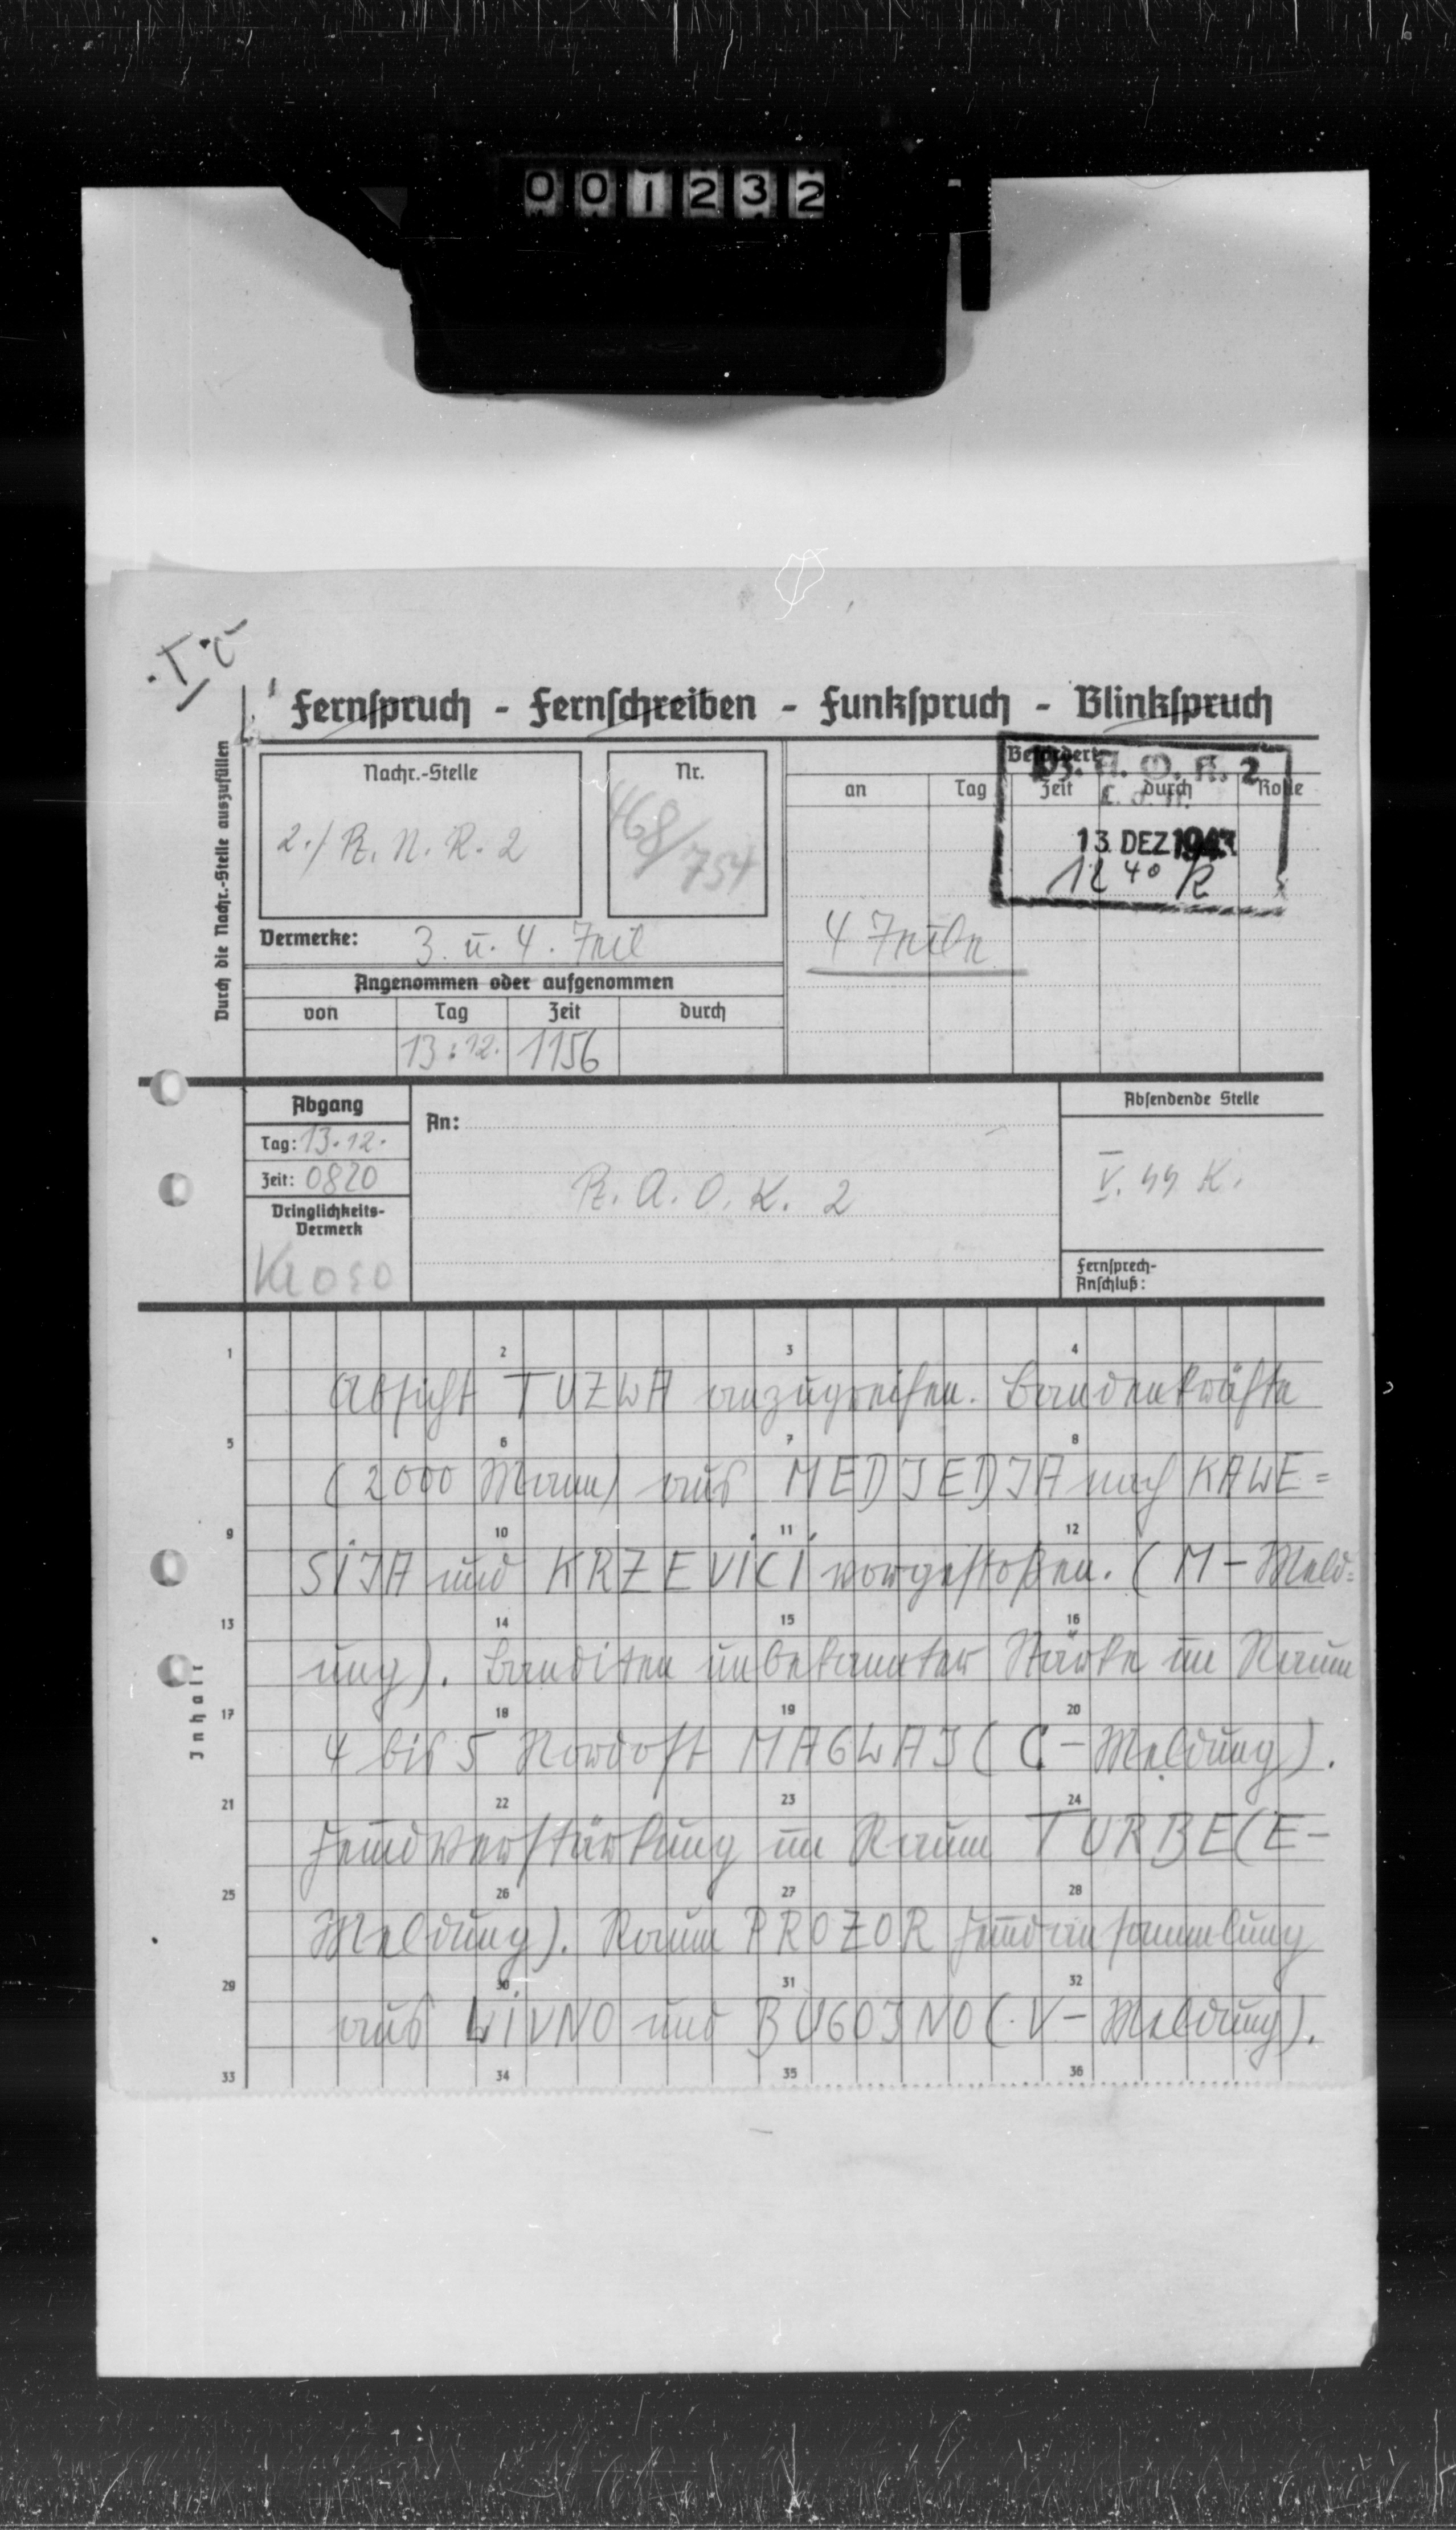 001232
Ic
Fernspruch - Fernschreiben - Funkspruch - Blinkspruch
Durch die Nachr.-Stelle auszufüllen
Nachr.-Stelle
2./ P. N. R. 2
Nr.
468/754
Befördert
an Tag Zeit durch Rolle
Pz. A. O. K. 2
13. DEZ 1943
4 Teiln
Vermerke: 3. u. 4. Teil
Angenommen oder aufgenommen
von Tag Zeit durch
13.12. 1156
Abgang
Tag: 13.12.
Zeit: 0820
Dringlichkeits-
Vermerk
An:
P. A. O. K. 2
Absendende Stelle
V. SS K.
Fernsprech-
Anschluß:
Inhalt
1 2 3 4
Absicht TUZLA anzugreifen. Bandenkräfte
5 6 7 8
(2000 Mann) aus MEDJEDJA nach KALE=
9 10 11 12
SIJA und KRZEVICI vorgestoßen. (M-Meld=
13 14 15 16
ung). Banditen unbekannter Stärke im Raum
17 18 19 20
4 bis 5 Nordost MAGLAJ (C-Meldung).
21 22 23 24
Feindverstärkung im Raum TURBE (E-
25 26 27 28
Meldung). Raum PROZOR Feindansammlung
29 30 31 32
aus LIVNO und BUGOJNO (V-Meldung).
33 34 35 36